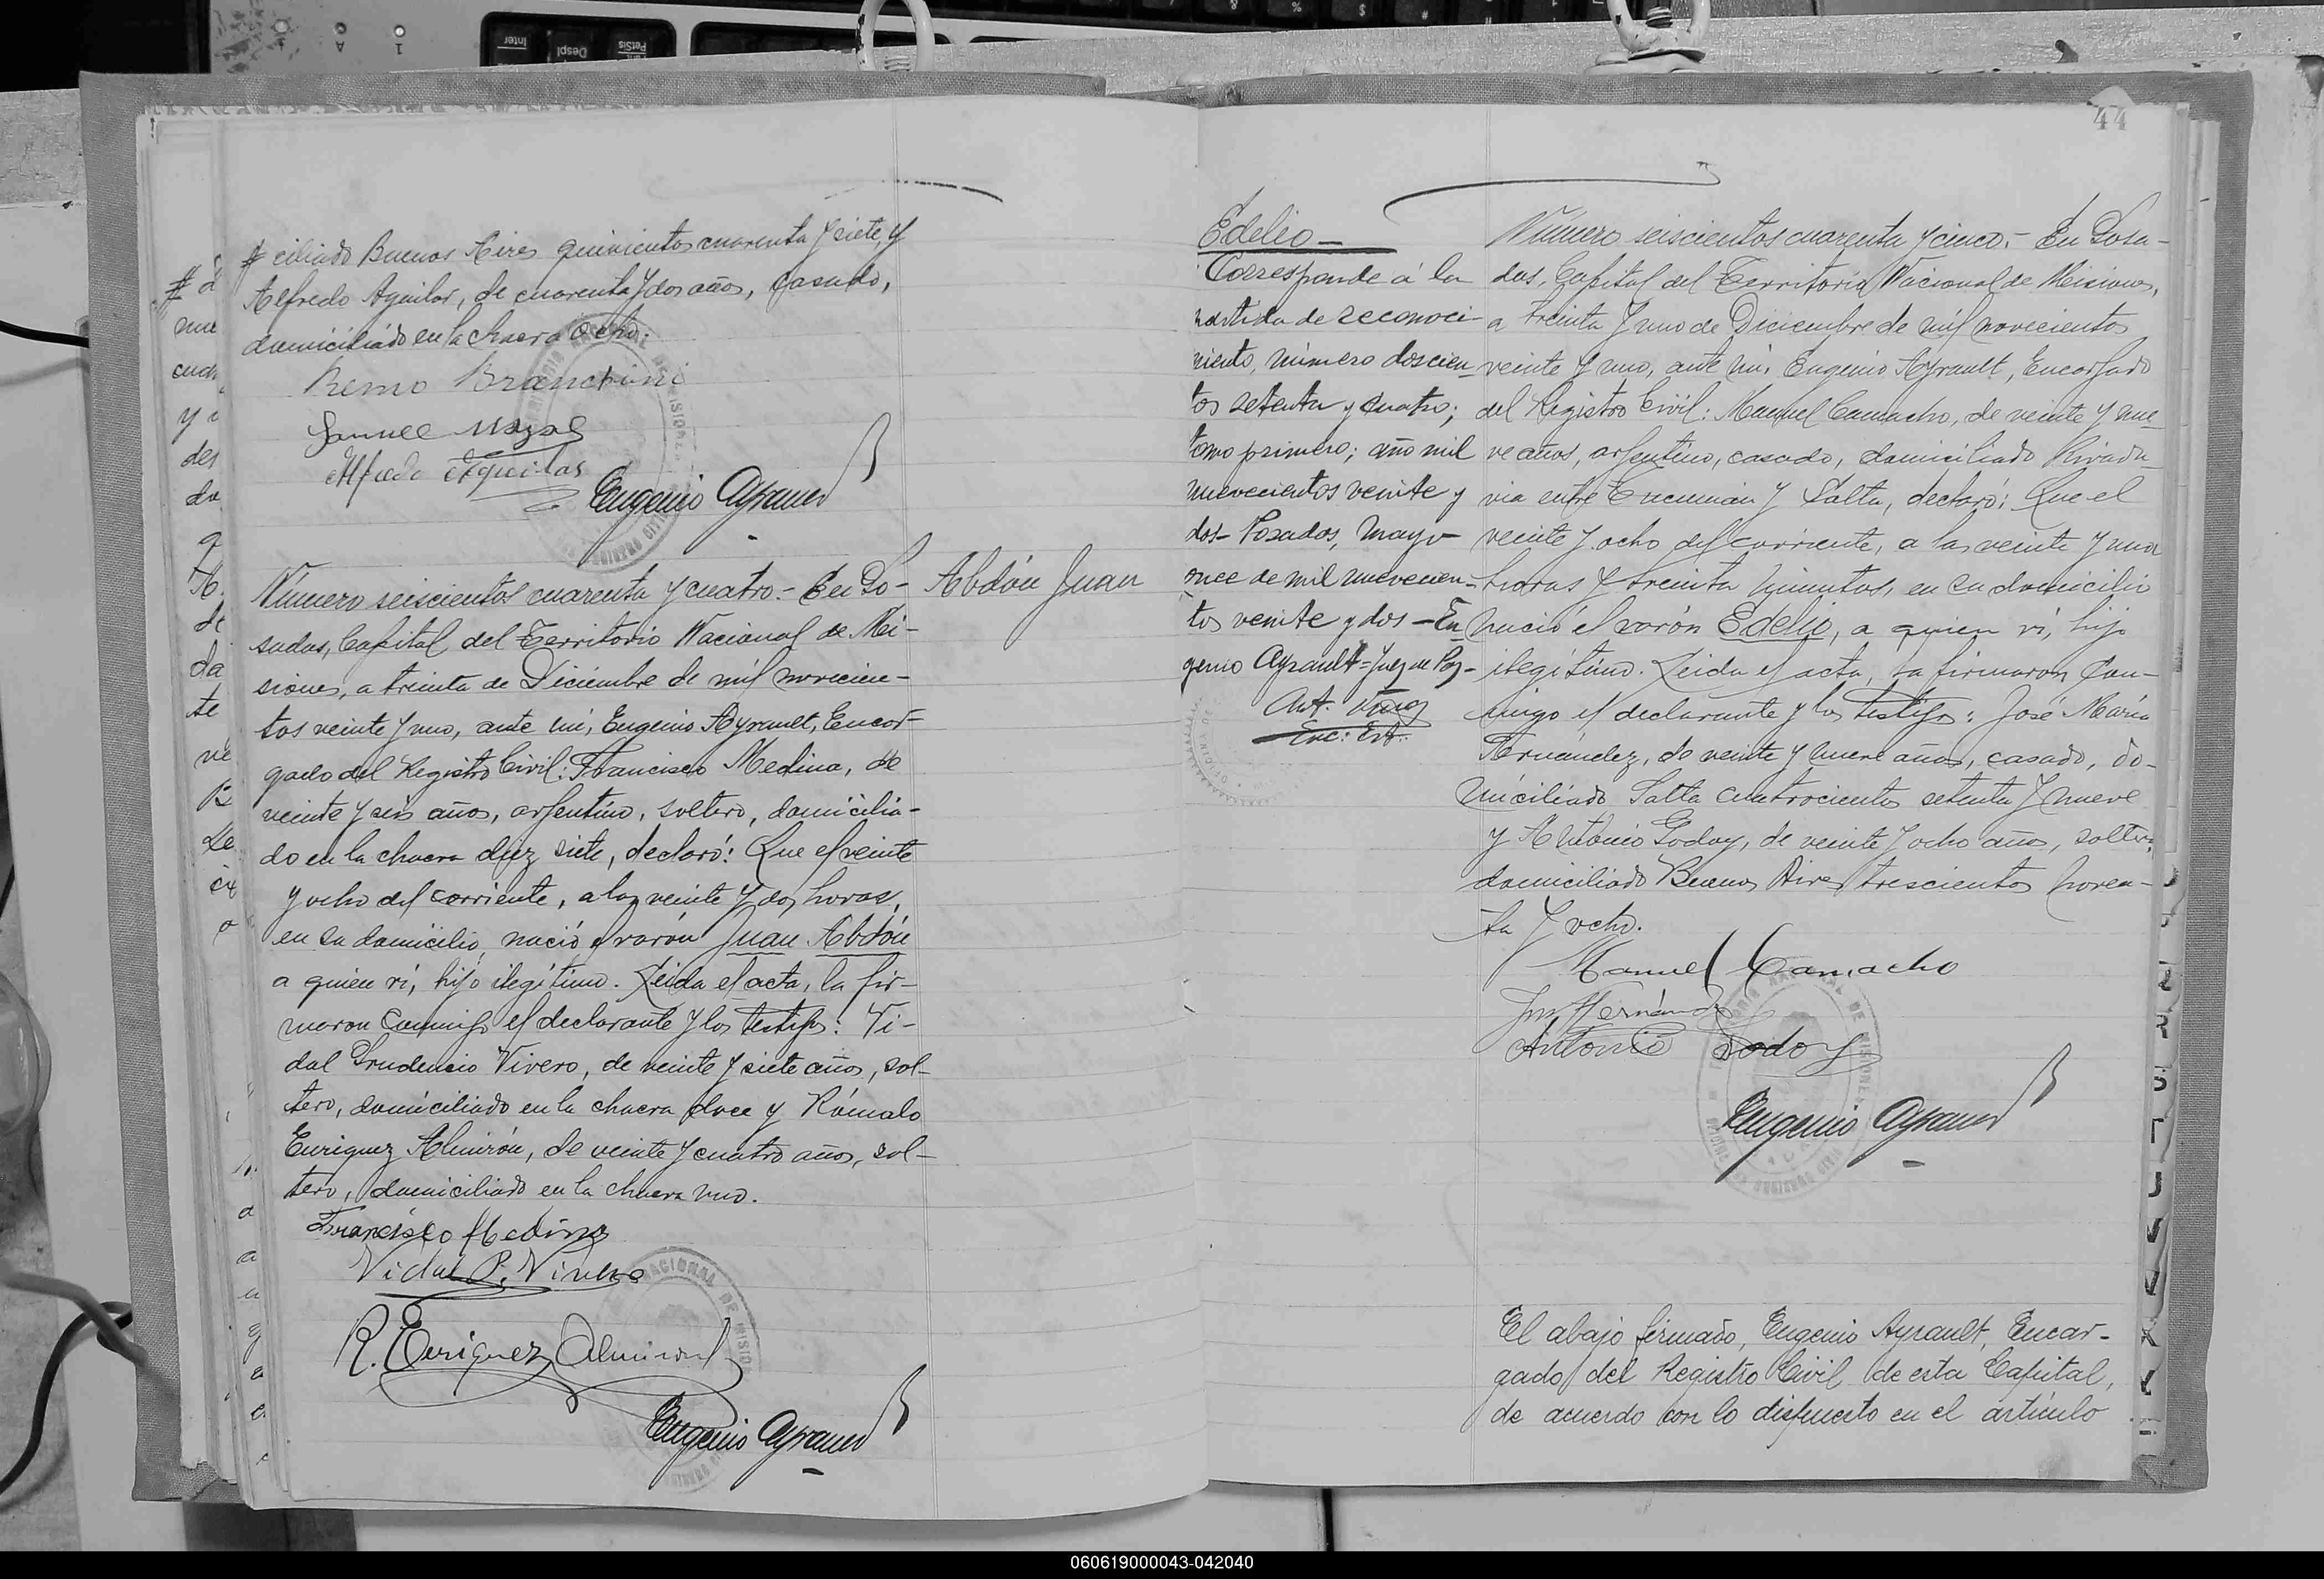 # ciliado Buenos Aires quinientos cuarenta y siete, y
Alfredo Aguilar, de cuarenta y dos años, casado,
domiciliado en la chacra ocho.
Remo Branchini
Samuel
Alfredo Aguilar
Eugenio Ayrault
Número seiscientos cuarenta y cuatro.- En Po-
sadas, Capital del Territorio Nacional de Mi-
siones, a treinta de Diciembre de mil novecien-
tos veinte y uno, ante mí, Eugenio Ayrault, Encar-
gado del Registro Civil: Francisco Medina, de
veinte y seis años, argentino, soltero, domicilia-
do en la chacra diez siete, declaró: Que el veinte
y ocho del corriente, a las veinte y dos horas,
en su domicilio, nació el varón Juan Abdón
a quien ví, hijo ilegítimo. Leida el acta, la fir-
maron conmigo el declarante y los testigos: Vi-
dal Prudencio Vivero, de veinte y siete años, sol-
tero, domiciliado en la chacra doce y Rómulo
Enriquez Almirón, de veinte y cuatro años, sol-
tero, domiciliado en la chacra uno.
Abdón Juan
Francisco Medina
Vidal P. Vivero
R. Enriquez Almiron
Eugenio Ayrault
44
Edelio-
Corresponde á la
partida de reconoci-
miento, número doscien-
tos setenta y cuatro;
tomo primero; año mil
nuevecientos veinte y
dos- Posadas, Mayo
once de mil nuevecien-
tos veinte y dos - Eu
genio Ayrault = Juez de Paz-
Número seiscientos cuarenta y cinco.- En Posa-
das, Capital del Territorio Nacional de Misiones,
a treinta y uno de Diciembre de mil novecientos
veinte y uno, ante mí, Eugenio Ayrault, Encargado
del Registro Civil: Manuel Camacho, de veinte y nue
ve años, argentino, casado, domiciliado Rivada-
via entre Tucumán y Salta, declaró: Que el
veinte y ocho del corriente, a las veinte y una
horas y treinta minutos, en su domicilio
nació el varón Edelio, a quien ví, hijo
ilegítimo. Leida el acta, la firmaron con-
migo el declarante y los testigos: José María
Hernández, de veinte y nueve años, casado, do-
miciliado Salta cuatrocientos setenta y nueve
y Antonio Godoy, de veinte y ocho años, soltero,
domiciliado Buenos Aires trescientos noven-
ta y ocho.
Manuel Camacho
Hernández
Antonio Godoy
Eugenio Ayrault
El abajo firmado, Eugenio Ayrault, Encar-
gado del Registro Civil de esta Capital,
de acuerdo con lo dispuesto en el artículo
060619000043-042040